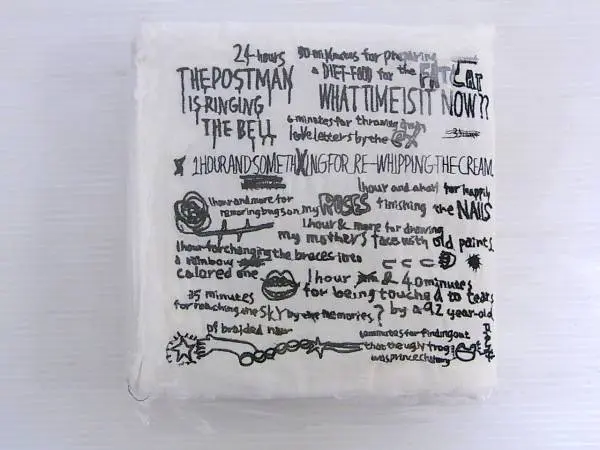 24 hours
THE POSTMAN
IS RINGING
THE BELL
30 minutes for preparing
a DIET-FOOD for the FAT CAT
WHAT TIME IS IT NOW??
6 minutes for throwing
love letters by the
1 HOUR AND SOMETHING FOR RE-WHIPPING THE CREAM
1 hour and more for
removing bugs on my ROSES
1 hour and a half for happily
finishing the NAILS
1 hour & more for drawing
my mothers face with old paints
1 hour for changing the braces into
a rainbow
colored one
1 hour & 40 minutes
for being touched to tears
by a 92 year-old
35 minutes
for reaching the SKY by the memories?
of braided hair
minutes for finding out
that the ugly frog
was prince charming